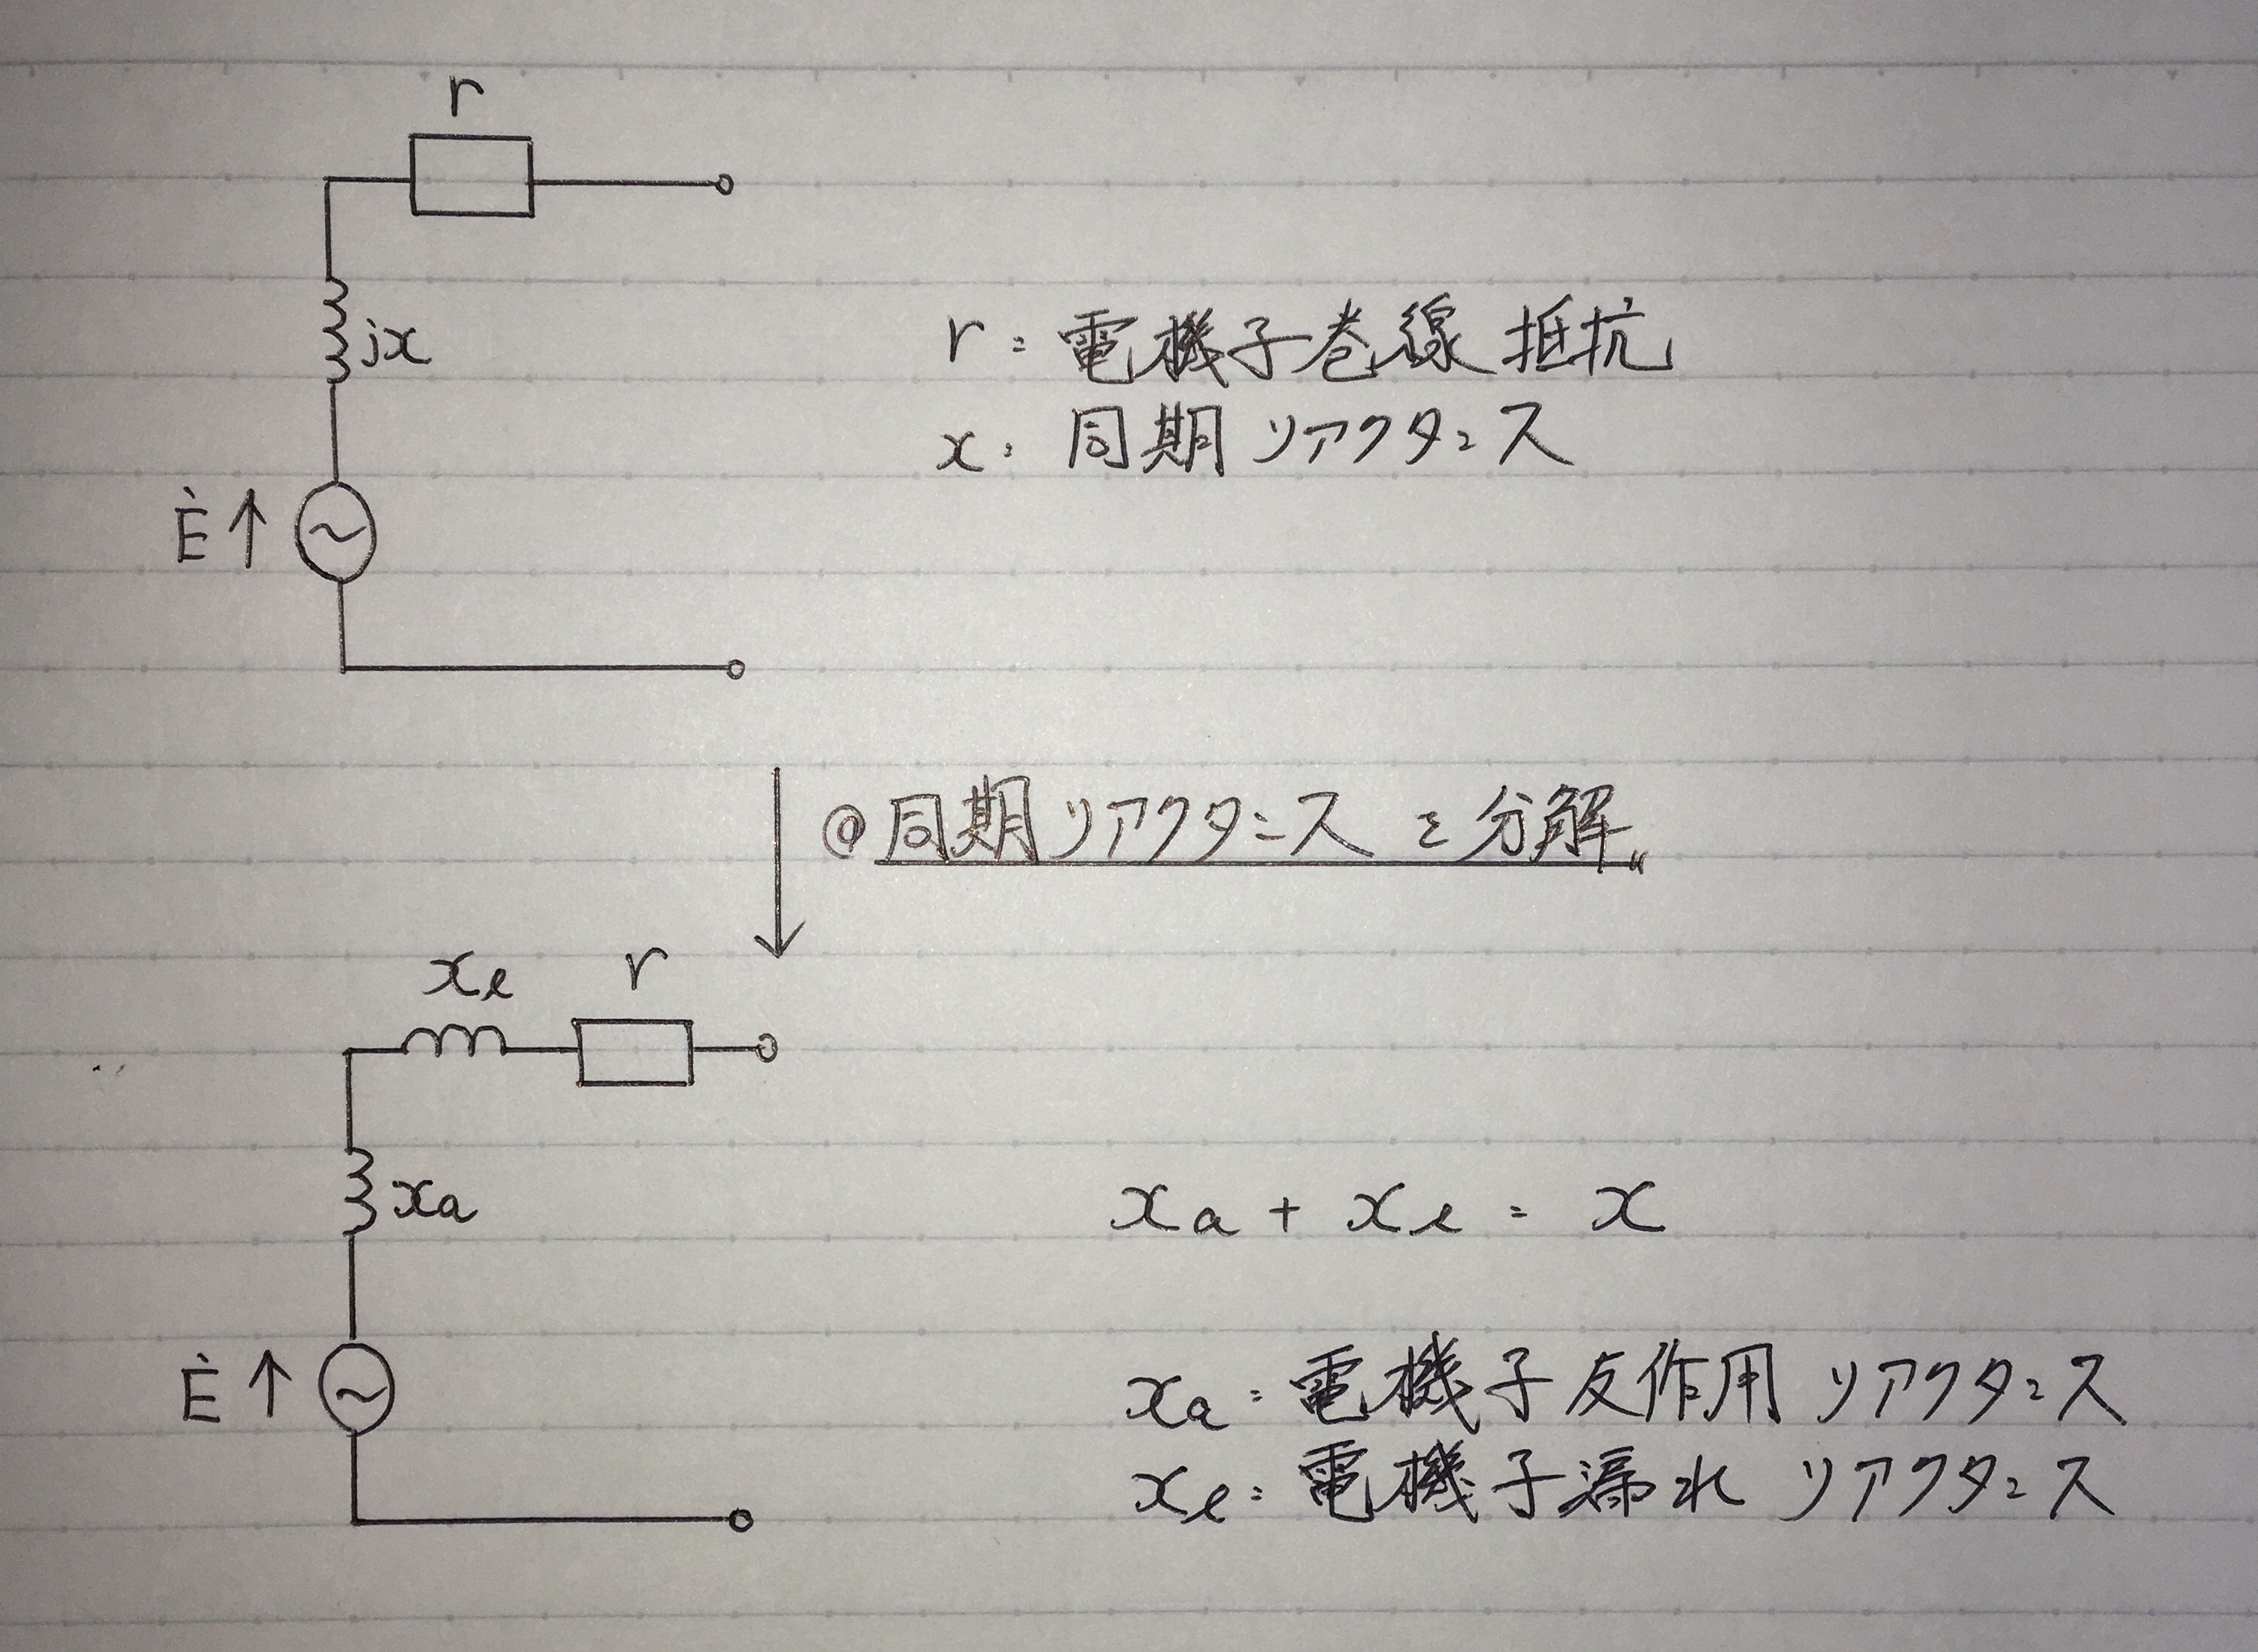 r
jx
Ė ↑
r: 電機子巻線抵抗
x: 同期リアクタンス
@同期リアクタンスを分解〟
xℓ
r
xa
Ė ↑
xa + xℓ = x
xa: 電機子反作用リアクタンス
xℓ: 電機子漏れリアクタンス